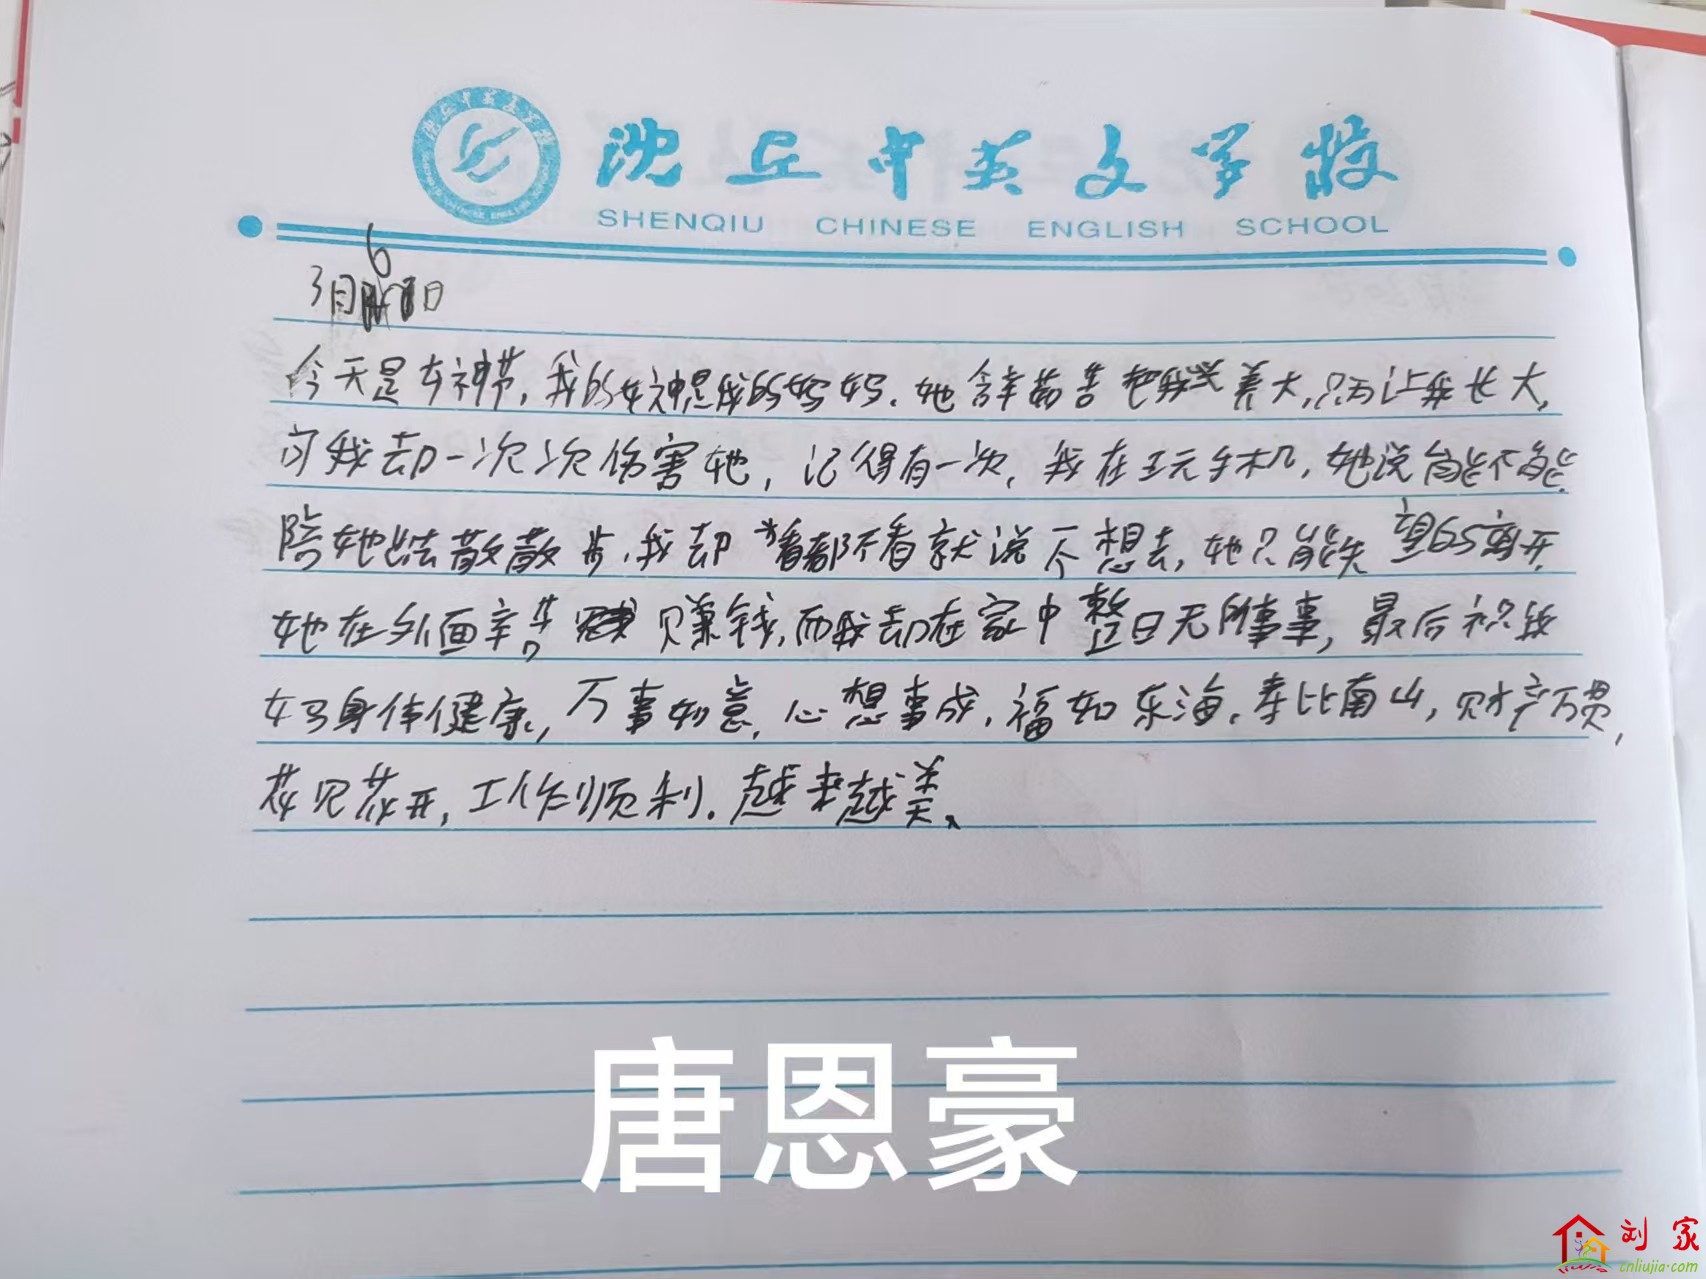 沈丘中英文学校
SHENQIU CHINESE ENGLISH SCHOOL
3月6日
今天是女神节,我的女神是我的妈妈.她含辛茹苦把我养大,只为让我长大,
可我却一次次伤害她,记得有一次,我在玩手机,她说能不能
陪她去散散步,我却看都不看就说不想去,她只能失望的离开,
她在外面辛苦赚钱,而我却在家中整日无所事事,最后祝我
妈身体健康,万事如意,心想事成,福如东海,寿比南山,财产万贯,
花见花开,工作顺利.越来越美、
唐恩豪
刘家
cnliujia.com